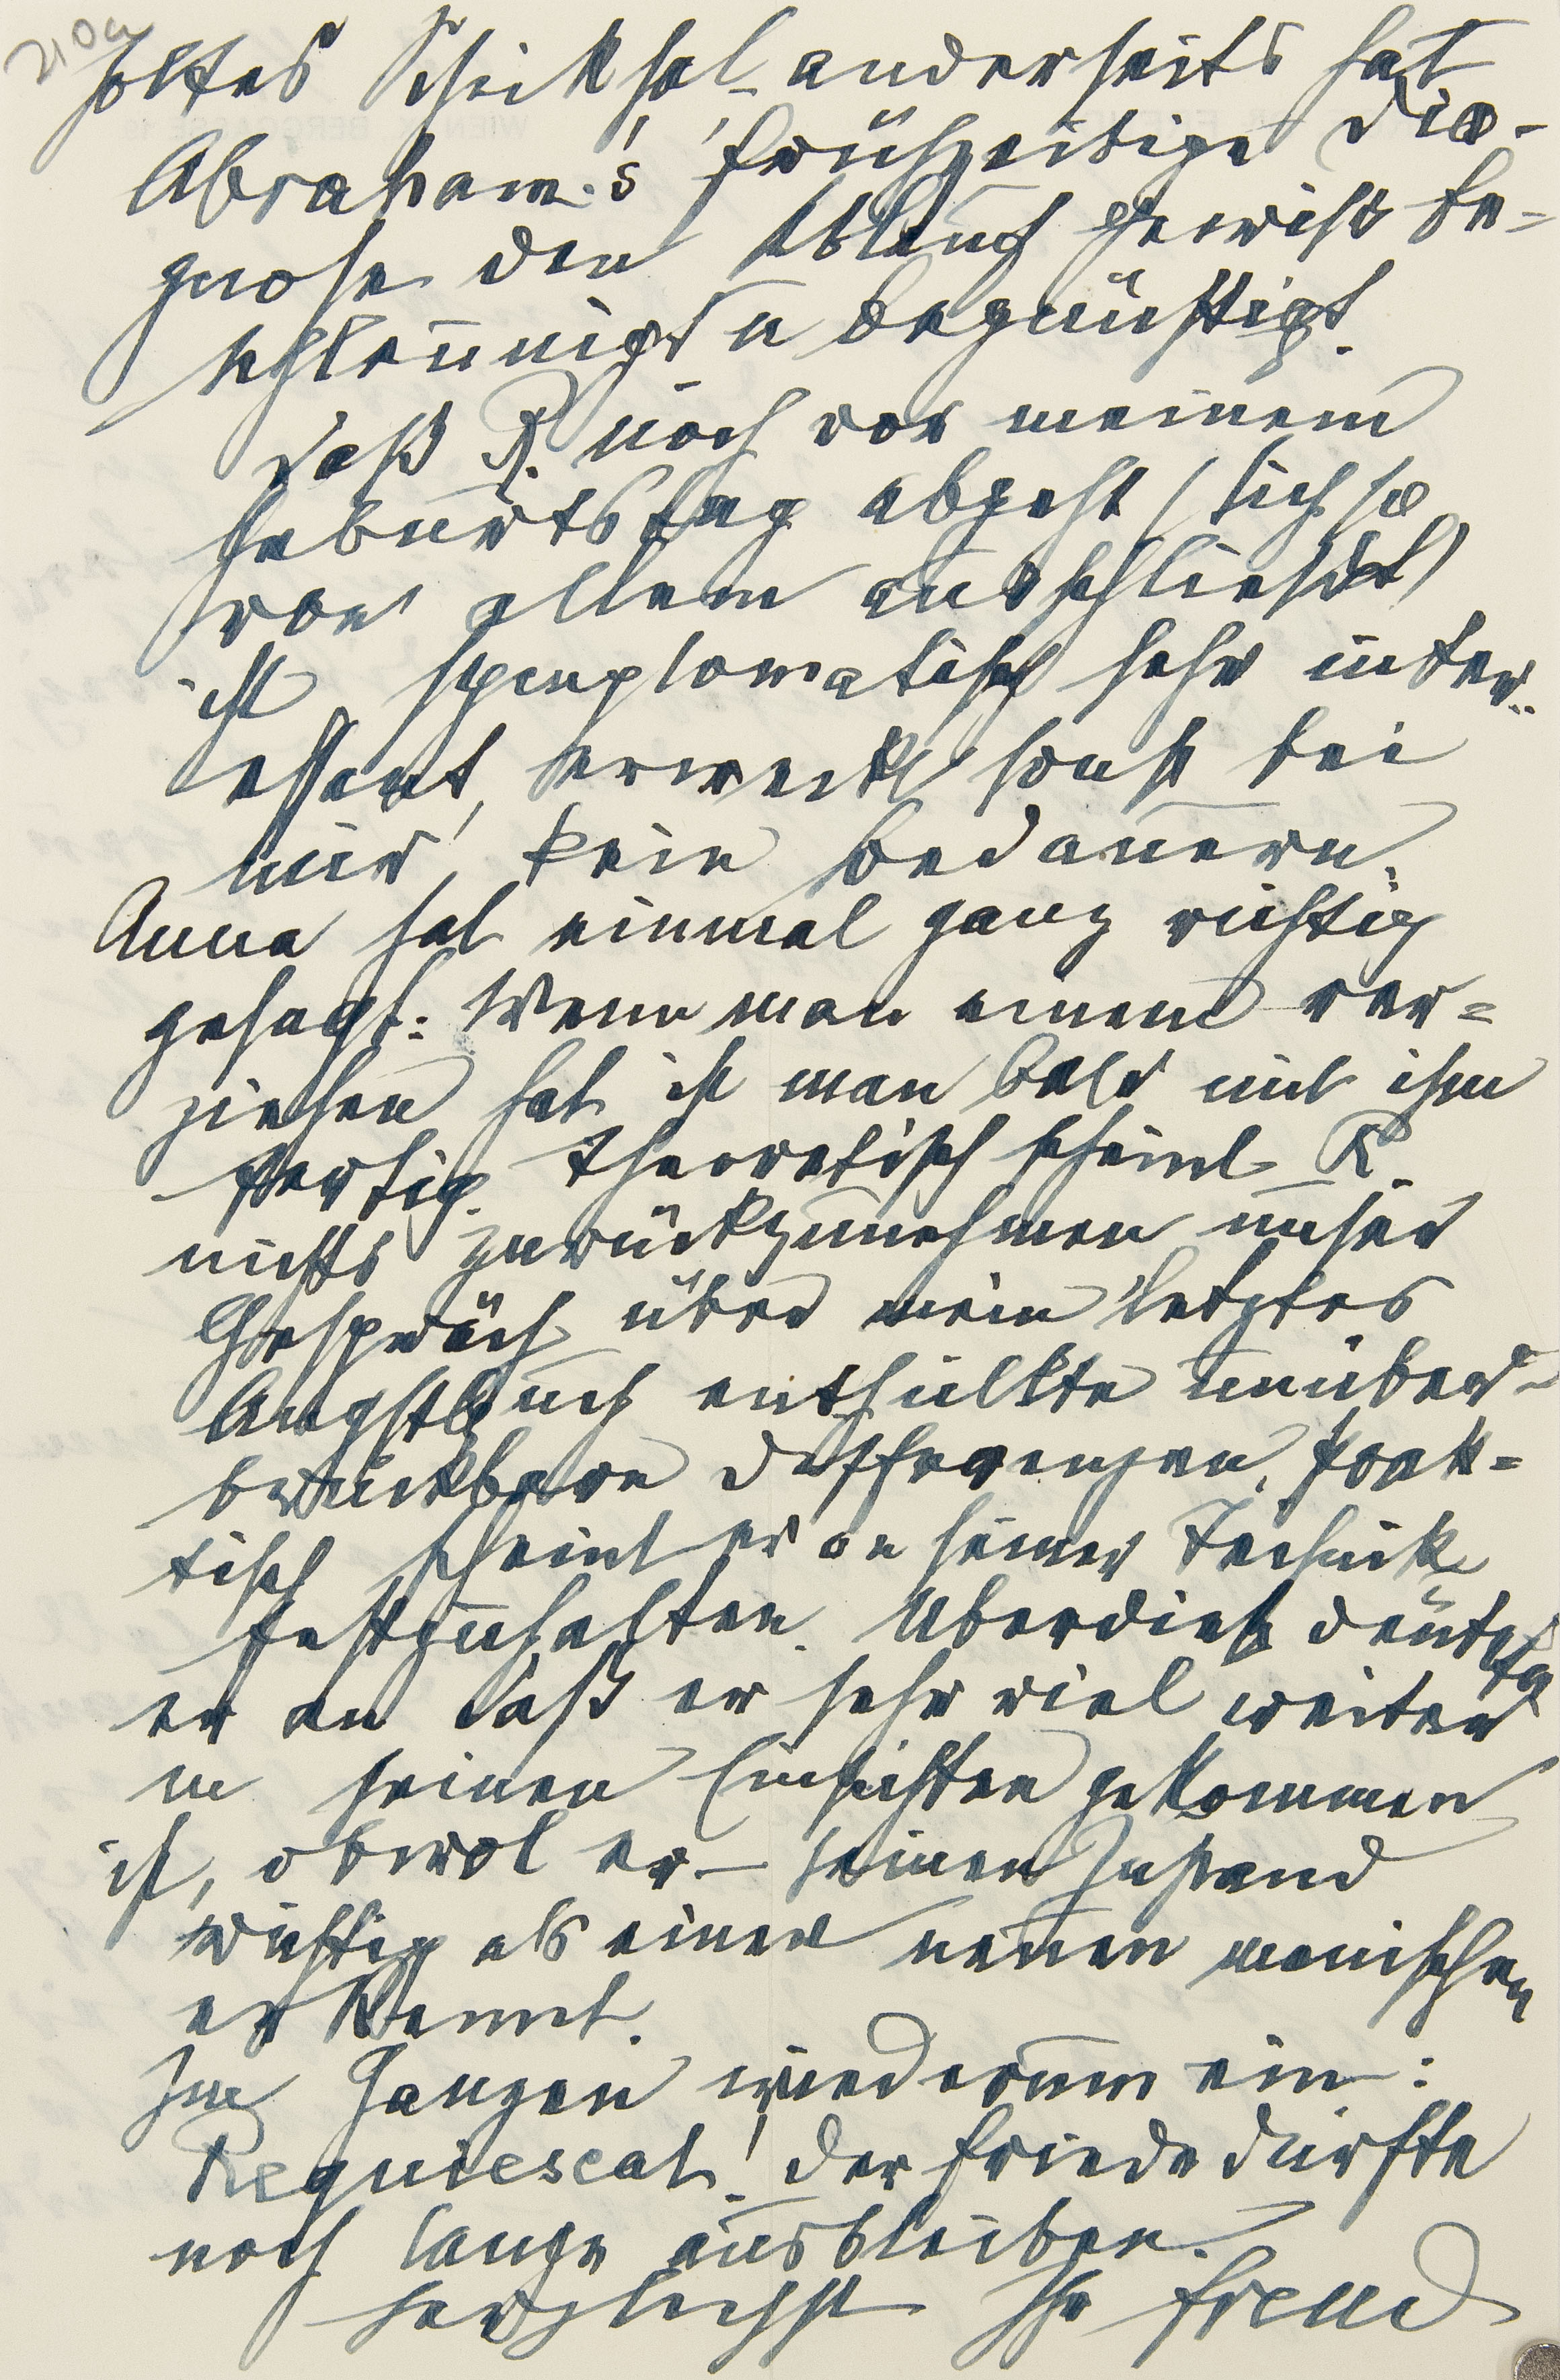 holtes Schicksal anderseits hat
Abraham's frühzeitige Dia-
gnose den Ablauf gewiß be-
schleunigt u begünstigt.
Daß R. noch vor meinem
Geburtstag abgeht (sich so
von allem ausschließt)
ist symptomatisch sehr inter-
essant, erweckt sonst bei
mir kein Bedauern.
Anna hat einmal ganz richtig
gesagt: Wenn man einem ver=
ziehen hat ist man bald mit ihm
fertig. Theoretisch scheint R.
nichts zurückzunehmen unser
Gespräch über mein letztes
Angstbuch enthüllte unüber-
brückbare Differenzen, prak=
tisch scheint er an seiner Technik
festzuhalten. Überdieß deutete
er an daß er sehr viel weiter
in seinen Einsichten gekommen
ist, obwol er – seinen Zustand
richtig als einen neuen manischen
erkennt.
Im Ganzen wiederum ein:
Requiescat! Der Friede dürfte
noch lange ausbleiben.
herzlichst Ihr Freud